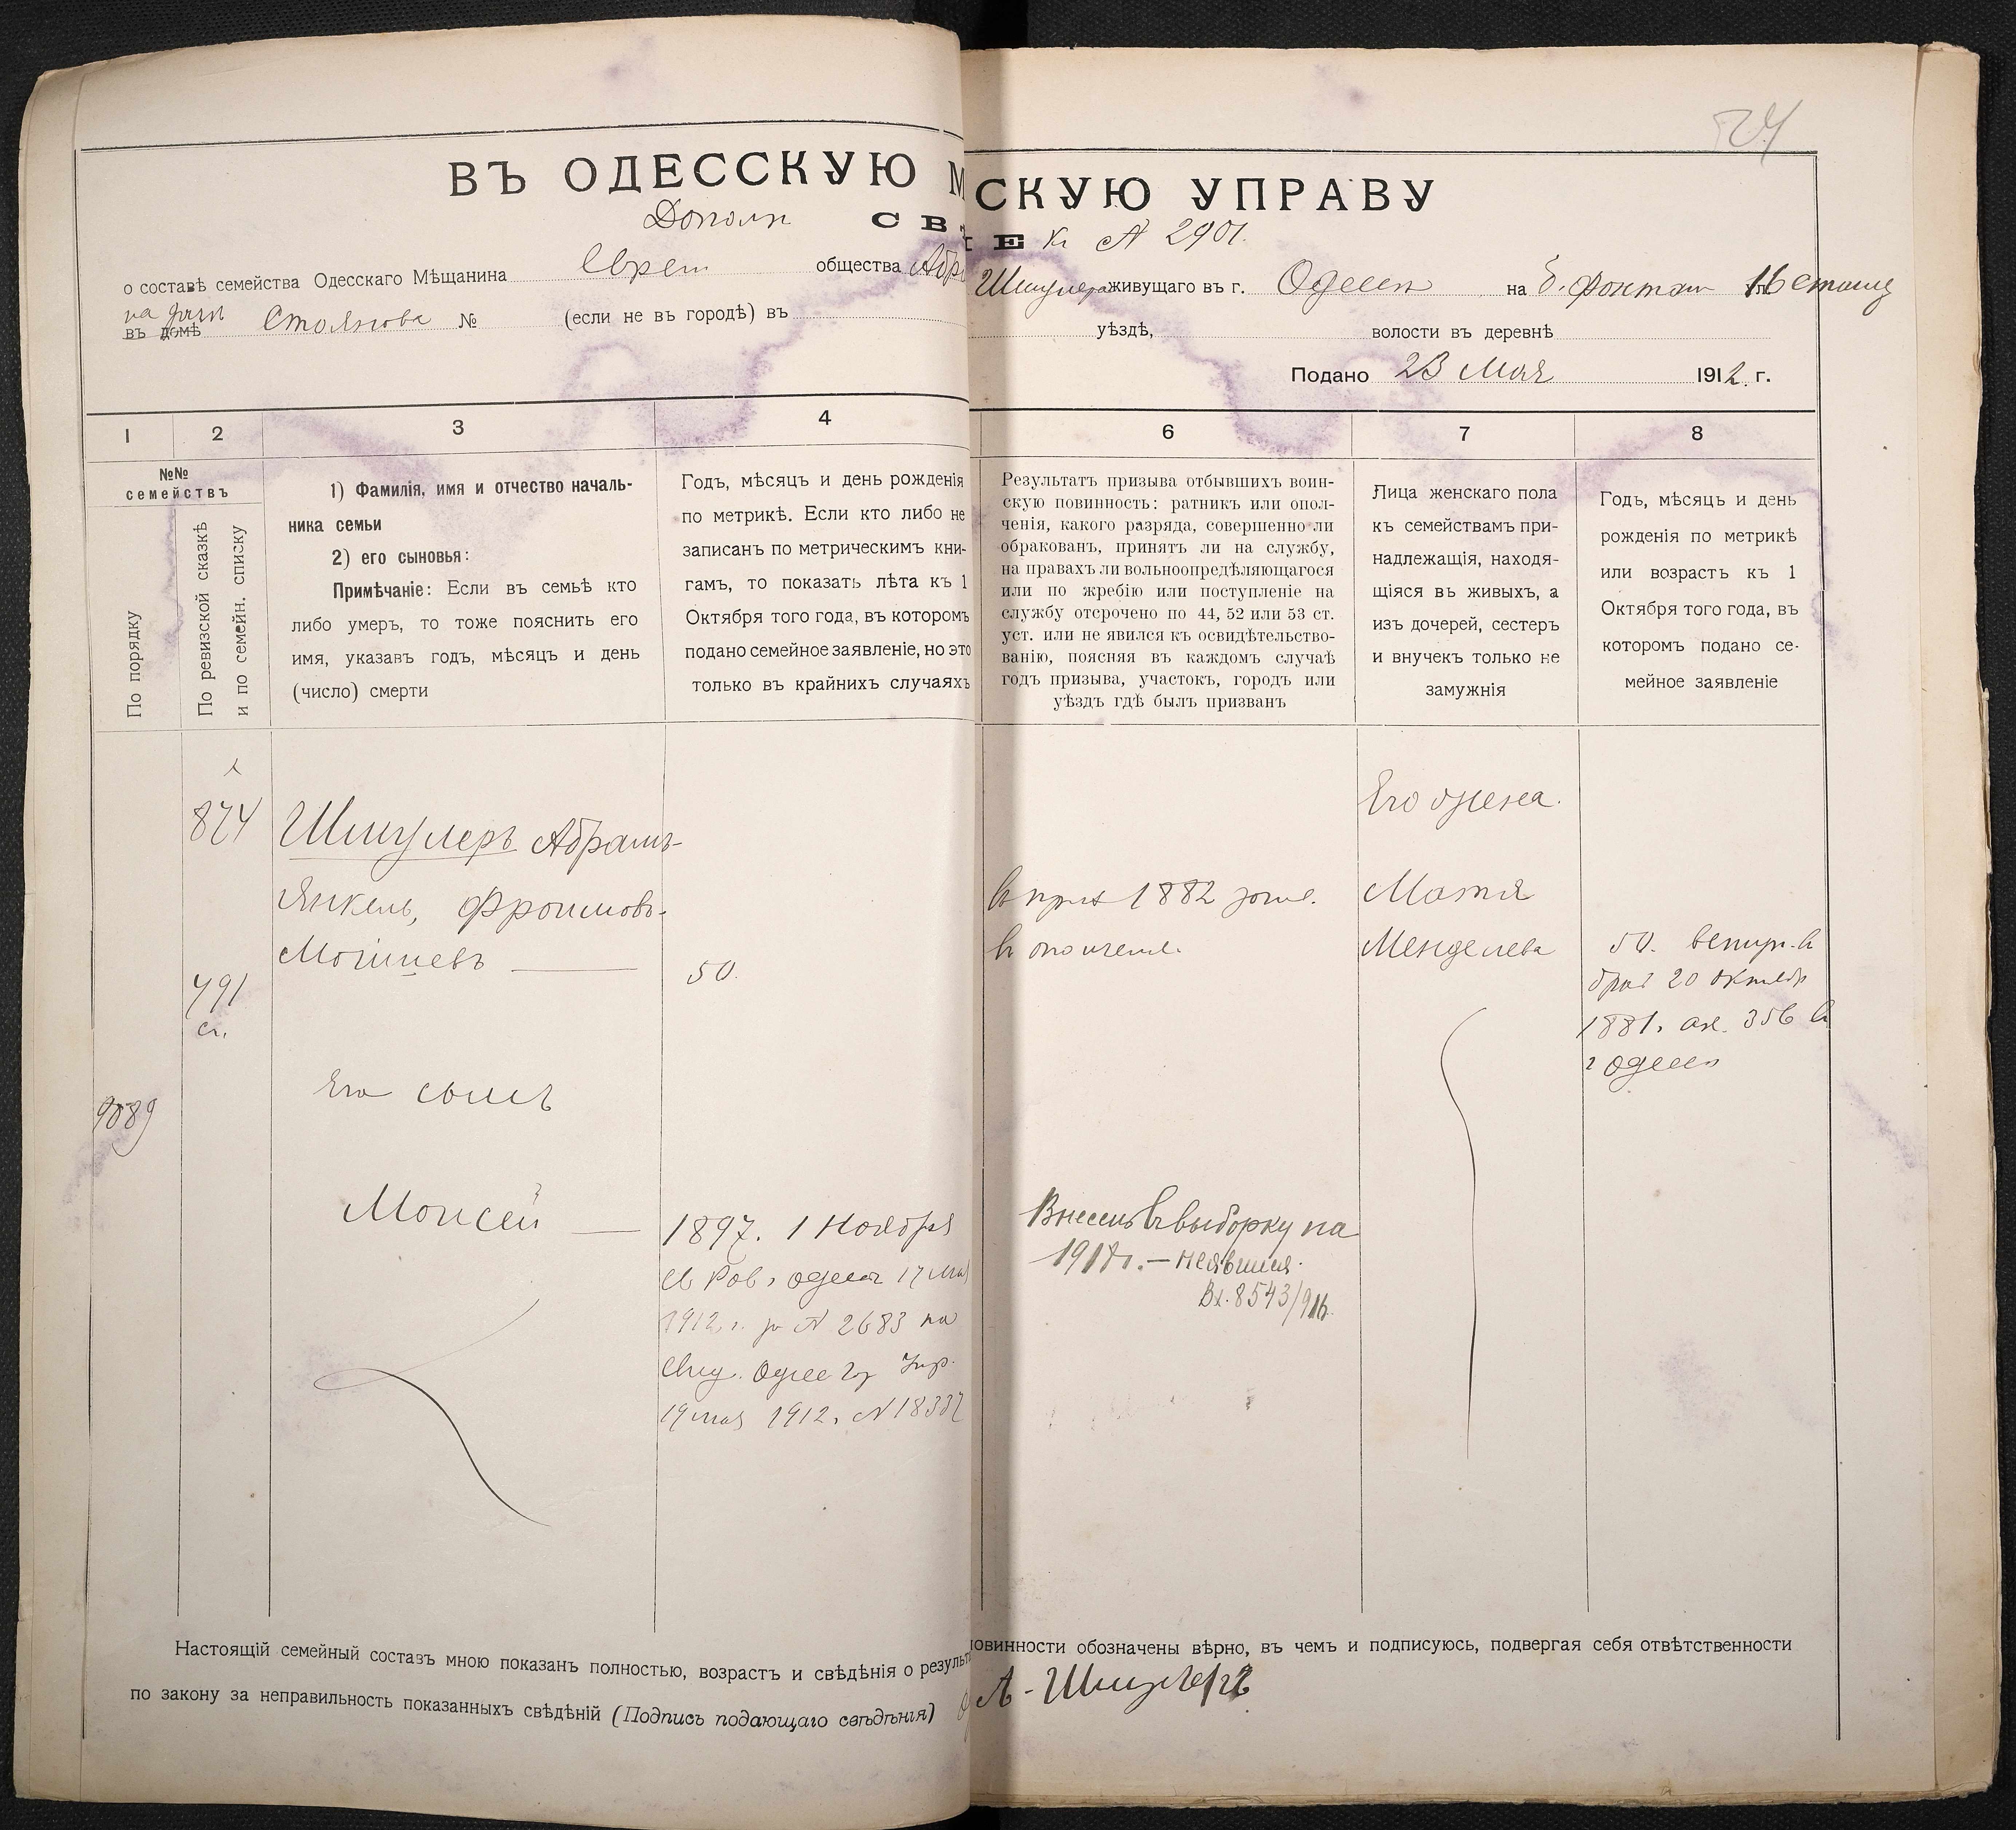 ВЪ ОДЕССКУЮ М
СКУЮ УПРАВУ
Дополн СВѢ
IЕ к № 2901.
о составѣ семейства Одесскаго Мѣщанина Еврей общества Абр
Шмулера живущаго въ г. Одессѣ на Б. Фонтан 16 станц
на дачѣ
въ домѣ Столярова № (если не въ городѣ) въ
уѣздѣ, волости въ деревнѣ
Подано 23 Мая 1912 г.
1 2 3 4
6 7 8
№№
семействъ
По порядку
По ревизской сказкѣ
и по семейн. списку
1) Фамилія, имя и отчество началь-
ника семьи
2) его сыновья:
Примѣчаніе: Если въ семьѣ кто
либо умеръ, то тоже пояснить его
имя, указавъ годъ, мѣсяцъ и день
(число) смерти
Годъ, мѣсяцъ и день рожденія
по метрикѣ. Если кто либо не
записанъ по метрическимъ кни-
гамъ, то показать лѣта къ 1
Октября того года, въ которомъ
подано семейное заявленіе, но это
только въ крайнихъ случаяхъ
Результатъ призыва отбывшихъ воин-
скую повинность: ратникъ или опол-
ченія, какого разряда, совершенно ли
обракованъ, принятъ ли на службу,
на правахъ ли вольноопредѣляющагося
или по жребію или поступленіе на
службу отсрочено по 44, 52 или 53 ст.
уст. или не явился къ освидѣтельство-
ванію, поясняя въ каждомъ случаѣ
годъ призыва, участокъ, городъ или
уѣздъ гдѣ былъ призванъ
Лица женскаго пола
къ семействамъ при-
надлежащія, находя-
щіяся въ живыхъ, а
изъ дочерей, сестеръ
и внучекъ только не
замужнія
Годъ, мѣсяцъ и день
рожденія по метрикѣ
или возрастъ къ 1
Октября того года, въ
которомъ подано се-
мейное заявленіе
874
Шмулеръ Абрамъ-
Янкель, Фроимовъ-
Мошкевъ
791
сп.
50.
9089
Его сынъ
Моисей
1897. 1 Ноября
Св Рав. Одессы 17 мая
1912 г. за № 2683 на
Свид. Одес Гор Упр.
19 мая 1912. № 18337
въ приз 1882 году.
въ ополчен.
Внесенъ въ выборку на
1917 г. — неявился.
Вх. 8543/916.
Его жена.
Матя
Менделева
50. вступ. въ
бракъ 20 октября
1881. ак. 356 въ
г Одессѣ
Настоящій семейный составъ мною показанъ полностью, возрастъ и свѣдѣнія о резуль
овинности обозначены вѣрно, въ чемъ и подписуюсь, подвергая себя отвѣтственности
по закону за неправильность показанныхъ свѣдѣній (Подпись подающаго свѣдѣнія)
А - Шмулеръ